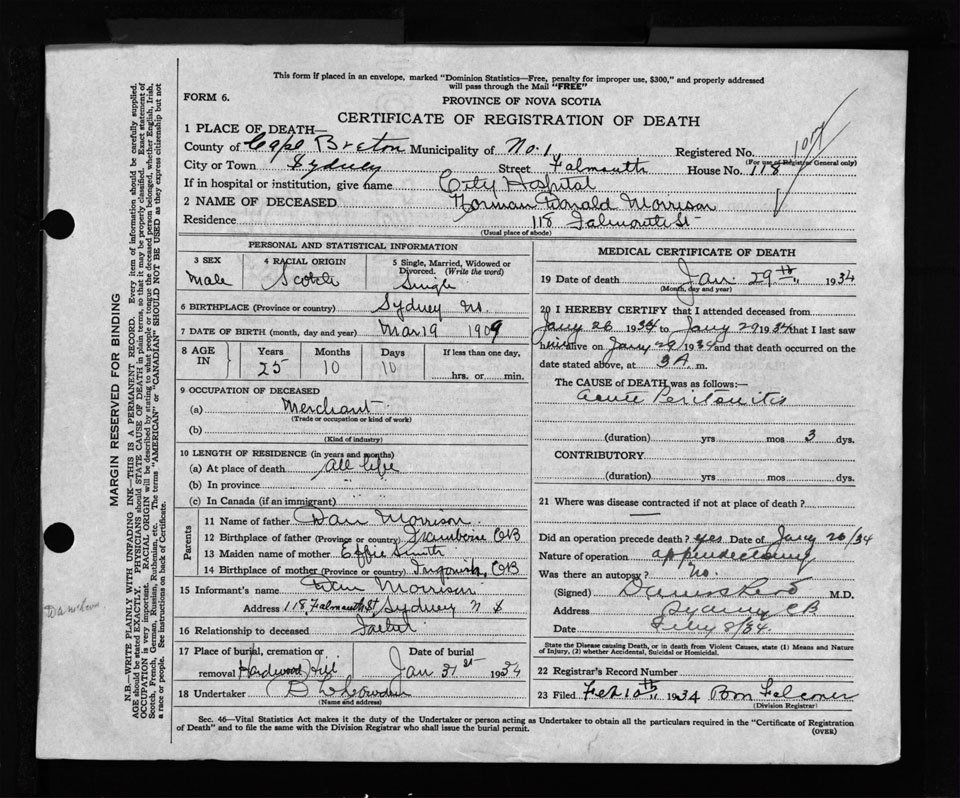 This form if placed in an envelope, marked "Dominion Statistics—Free, penalty for improper use, $300," and properly addressed
will pass through the Mail "FREE"
FORM 6.
PROVINCE OF NOVA SCOTIA
CERTIFICATE OF REGISTRATION OF DEATH
1 PLACE OF DEATH—
County of Cape Breton Municipality of No. 1 Registered No.
(For use of Registrar General only)
City or Town Sydney Street Falmouth House No. 118
If in hospital or institution, give name City Hospital
2 NAME OF DECEASED Norman Donald Morrison
Residence 118 Falmouth St
(Usual place of abode)
PERSONAL AND STATISTICAL INFORMATION
3 SEX 4 RACIAL ORIGIN 5 Single, Married, Widowed or
Divorced. (Write the word)
Male Scotch Single
6 BIRTHPLACE (Province or country) Sydney N.S.
7 DATE OF BIRTH (month, day and year) Mar 19 1909
8 AGE IN Years Months Days If less than one day,
25 10 10 hrs. or min.
9 OCCUPATION OF DECEASED
(a) Merchant
(Trade or occupation or kind of work)
(b)
(Kind of industry)
10 LENGTH OF RESIDENCE (in years and months)
(a) At place of death All life
(b) In province " "
(c) In Canada (if an immigrant)
Parents
11 Name of father Dan Morrison
12 Birthplace of father (Province or country) Framboise CB
13 Maiden name of mother Effie Smith
14 Birthplace of mother (Province or country) Ingonish, CB
15 Informant's name Dan Morrison
Address 118 Falmouth St, Sydney N S
16 Relationship to deceased Father
17 Place of burial, cremation or Date of burial
removal Hardwood Hill Jan 31st 1934
18 Undertaker
(Name and address)
MEDICAL CERTIFICATE OF DEATH
19 Date of death Jan. 29th, 1934
(Month, day and year)
20 I HEREBY CERTIFY that I attended deceased from
Jany 26 1934 to Jany 29 1934 that I last saw
him alive on Jany 29/1934 and that death occurred on the
date stated above, at 3 A. m.
The CAUSE OF DEATH was as follows:—
Acute Peritonitis
(duration) yrs mos 3 dys.
CONTRIBUTORY
(duration) yrs. mos dys.
21 Where was disease contracted if not at place of death?
—
Did an operation precede death? yes Date of Jany 26/34
Nature of operation appendectomy
Was there an autopsy? No.
(Signed) M.D.
Address Sydney CB
Date Feby 8/34
State the Disease causing Death, or in death from Violent Causes, state (1) Means and Nature
of Injury, (2) whether Accidental, Suicidal or Homicidal.
22 Registrar's Record Number
23 Filed Feb 10th, 1934 Falconer
(Division Registrar)
Sec. 46—Vital Statistics Act makes it the duty of the Undertaker or person acting as Undertaker to obtain all the particulars required in the "Certificate of Registration
of Death" and to file the same with the Division Registrar who shall issue the burial permit.
(OVER)
MARGIN RESERVED FOR BINDING
N.B.—WRITE PLAINLY WITH UNFADING INK—THIS IS A PERMANENT RECORD. Every item of information should be carefully supplied.
AGE should be stated EXACTLY. PHYSICIANS should STATE CAUSE OF DEATH in plain terms, so that it may be properly classified. Exact statement of
OCCUPATION is very important. RACIAL ORIGIN will be described by stating to what people or tongue the deceased person belonged, whether English, Irish,
Scotch, French, German, Russian, Ruthenian, etc. The terms "AMERICAN" or "CANADIAN" SHOULD NOT BE USED as they express citizenship but not
a race or people. See instructions on back of Certificate.